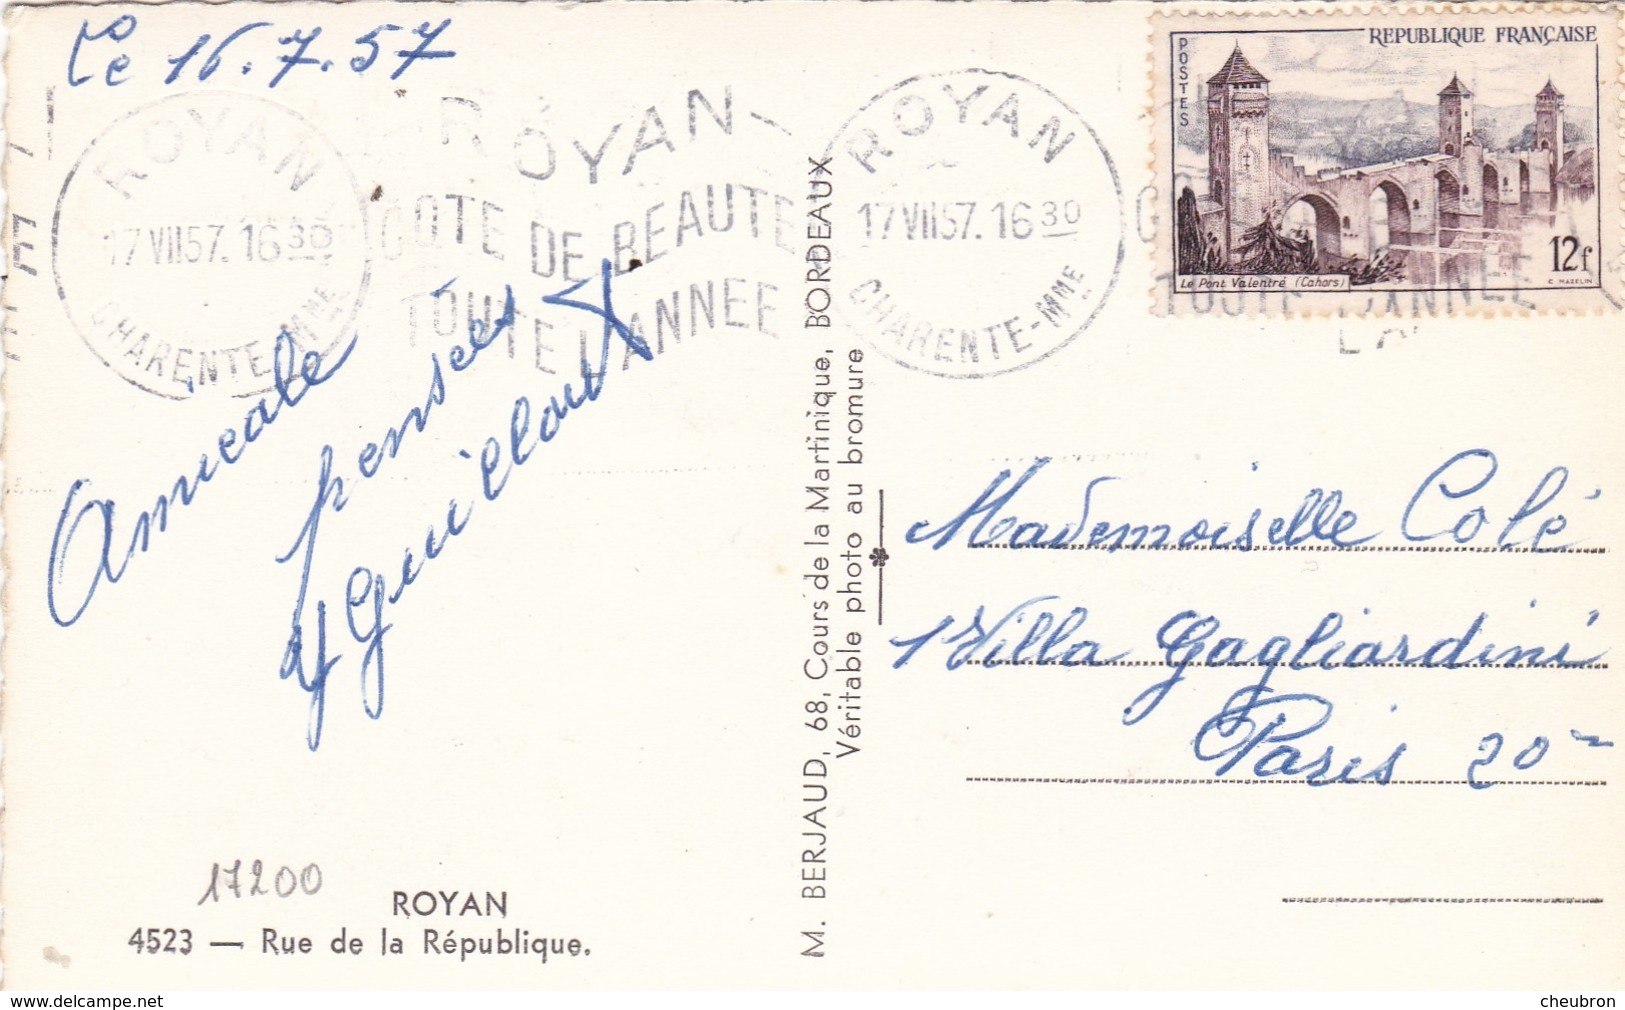 Le 16.7.57
ROYAN
17 VII 57. 16 30
CHARENTE-MME
ROYAN
COTE DE BEAUTE
TOUTE L'ANNEE
ROYAN
17 VII 57. 16 30
CHARENTE-MME
REPUBLIQUE FRANÇAISE
POSTES
12f
Le Pont Valentré (Cahors)
C. MAZELIN
TOUTE L'ANNEE
Amicale
pensées
M. BERJAUD, 68, Cours de la Martinique, BORDEAUX
Véritable photo au bromure
Mademoiselle Colé
1 Villa Gagliardini
Paris 20
17200
ROYAN
4523 — Rue de la République.
www.delcampe.net
cheubron